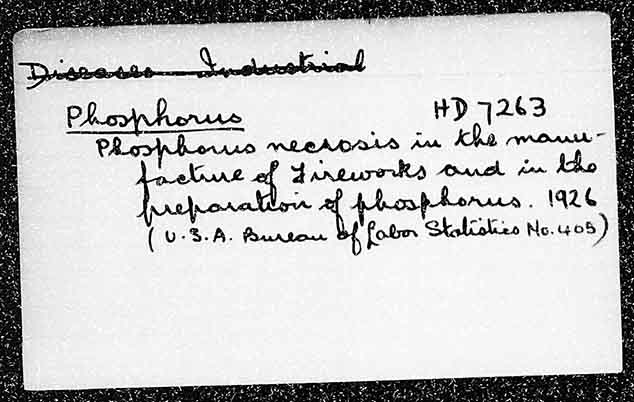 Diseases Industrial
Phosphorus HD 7263
Phosphorus necrosis in the manu-
facture of fireworks and in the
preparation of phosphorus. 1926
(U.S.A. Bureau of Labor Statistics No. 405)